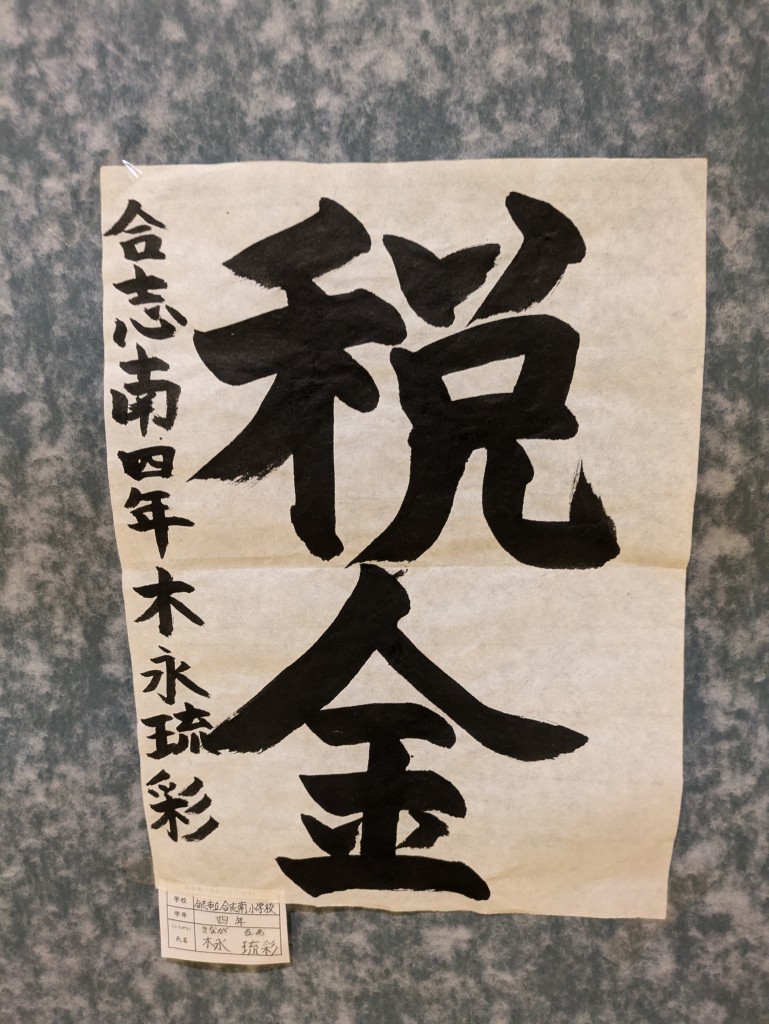 税金
合志南四年木永琉彩
学校 合志市立合志南小学校
学年 四年
氏名 木永 琉彩
きなが